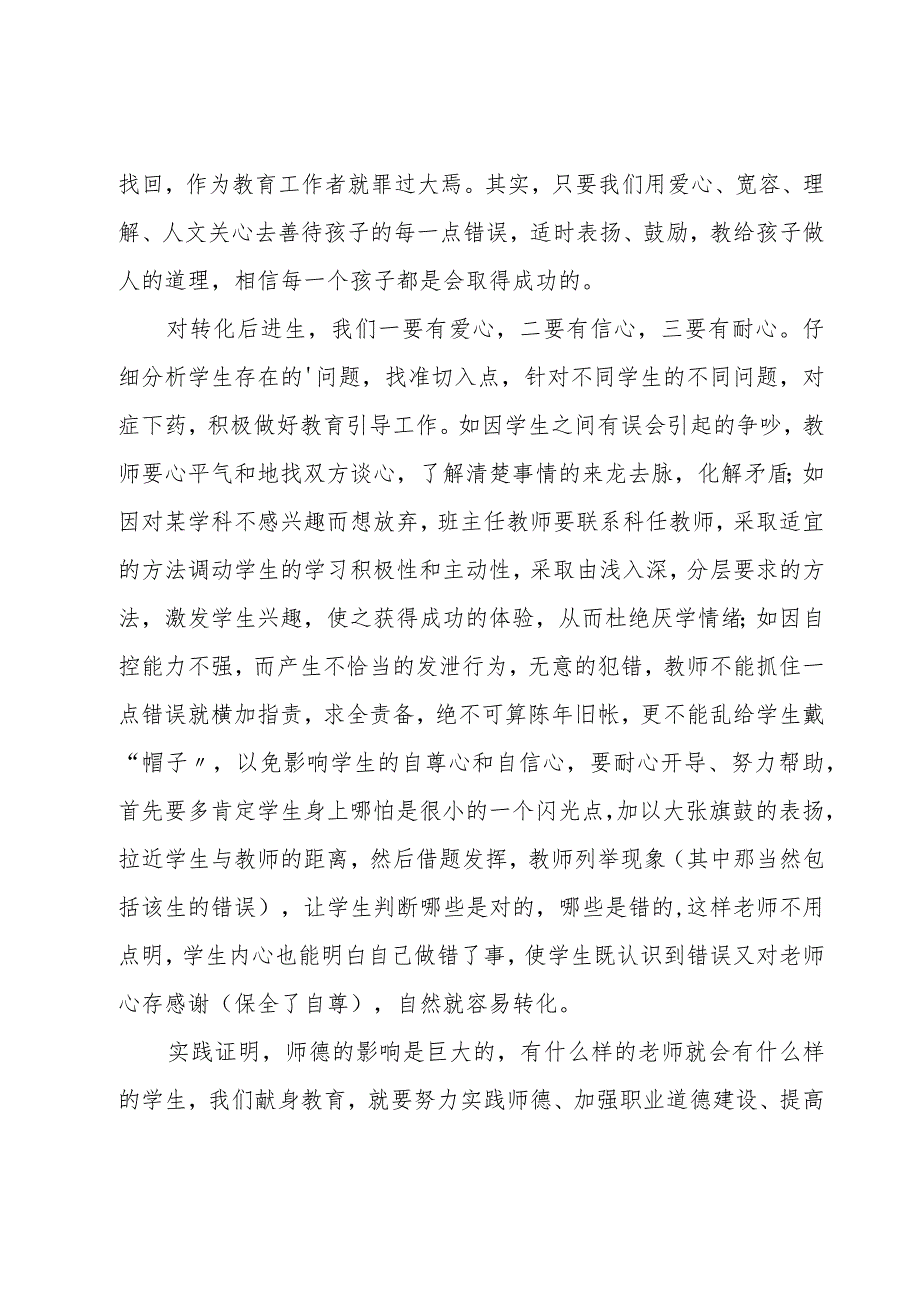 找回，作为教育工作者就罪过大焉。其实，只要我们用爱心、宽容、理
解、人文关心去善待孩子的每一点错误，适时表扬、鼓励，教给孩子做
人的道理，相信每一个孩子都是会取得成功的。
对转化后进生，我们一要有爱心，二要有信心，三要有耐心。仔
细分析学生存在的'问题，找准切入点，针对不同学生的不同问题，对
症下药，积极做好教育引导工作。如因学生之间有误会引起的争吵，教
师要心平气和地找双方谈心，了解清楚事情的来龙去脉，化解矛盾；如
因对某学科不感兴趣而想放弃，班主任教师要联系科任教师，采取适宜
的方法调动学生的学习积极性和主动性，采取由浅入深，分层要求的方
法，激发学生兴趣，使之获得成功的体验，从而杜绝厌学情绪；如因自
控能力不强，而产生不恰当的发泄行为，无意的犯错，教师不能抓住一
点错误就横加指责，求全责备，绝不可算陈年旧帐，更不能乱给学生戴
“帽子〃，以免影响学生的自尊心和自信心，要耐心开导、努力帮助，
首先要多肯定学生身上哪怕是很小的一个闪光点，加以大张旗鼓的表扬，
拉近学生与教师的距离，然后借题发挥，教师列举现象（其中那当然包
括该生的错误），让学生判断哪些是对的，哪些是错的,这样老师不用
点明，学生内心也能明白自己做错了事，使学生既认识到错误又对老师
心存感谢（保全了自尊），自然就容易转化。
实践证明，师德的影响是巨大的，有什么样的老师就会有什么样
的学生，我们献身教育，就要努力实践师德、加强职业道德建设、提高